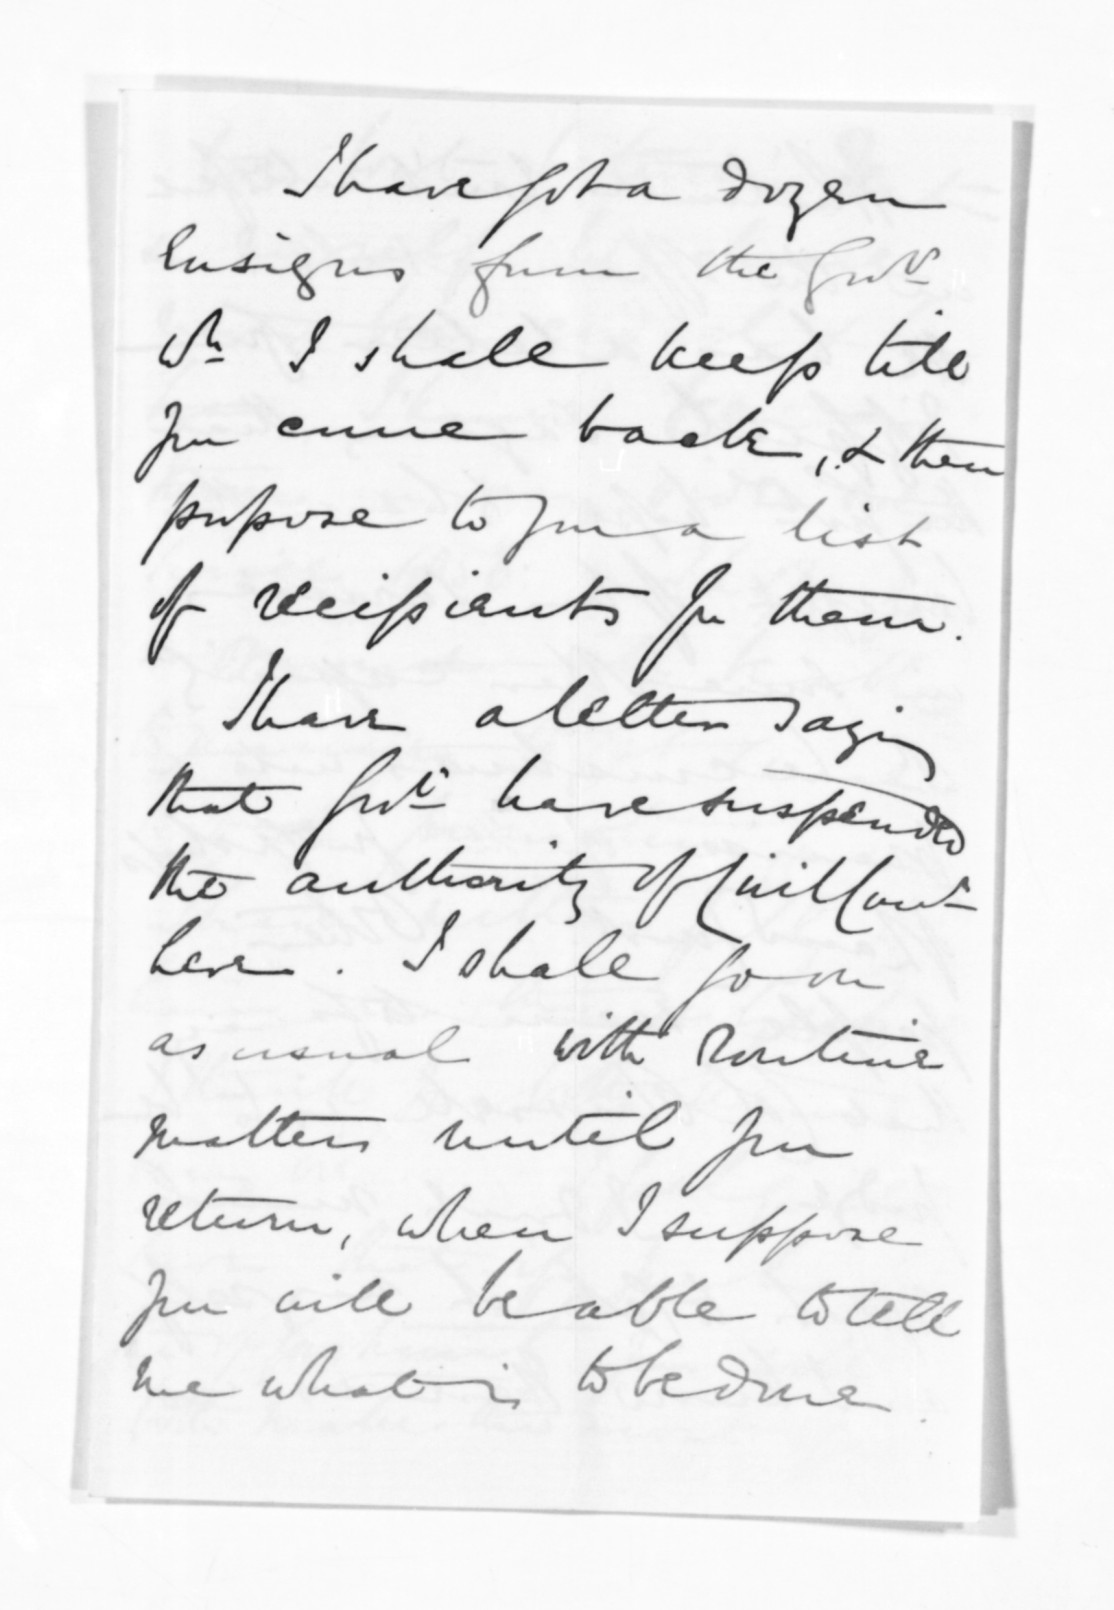 I have got a dozen
Ensigns from the Govt.
wh. I shall keep till
you come back, & then
propose to you a list
of recipients for them.
I have a letter saying
that Govt. have suspended
the authority of Civil Comr.
here. I shall go on
as usual with routine
matters until you
return, when I suppose
you will be able to tell
me what is to be done.